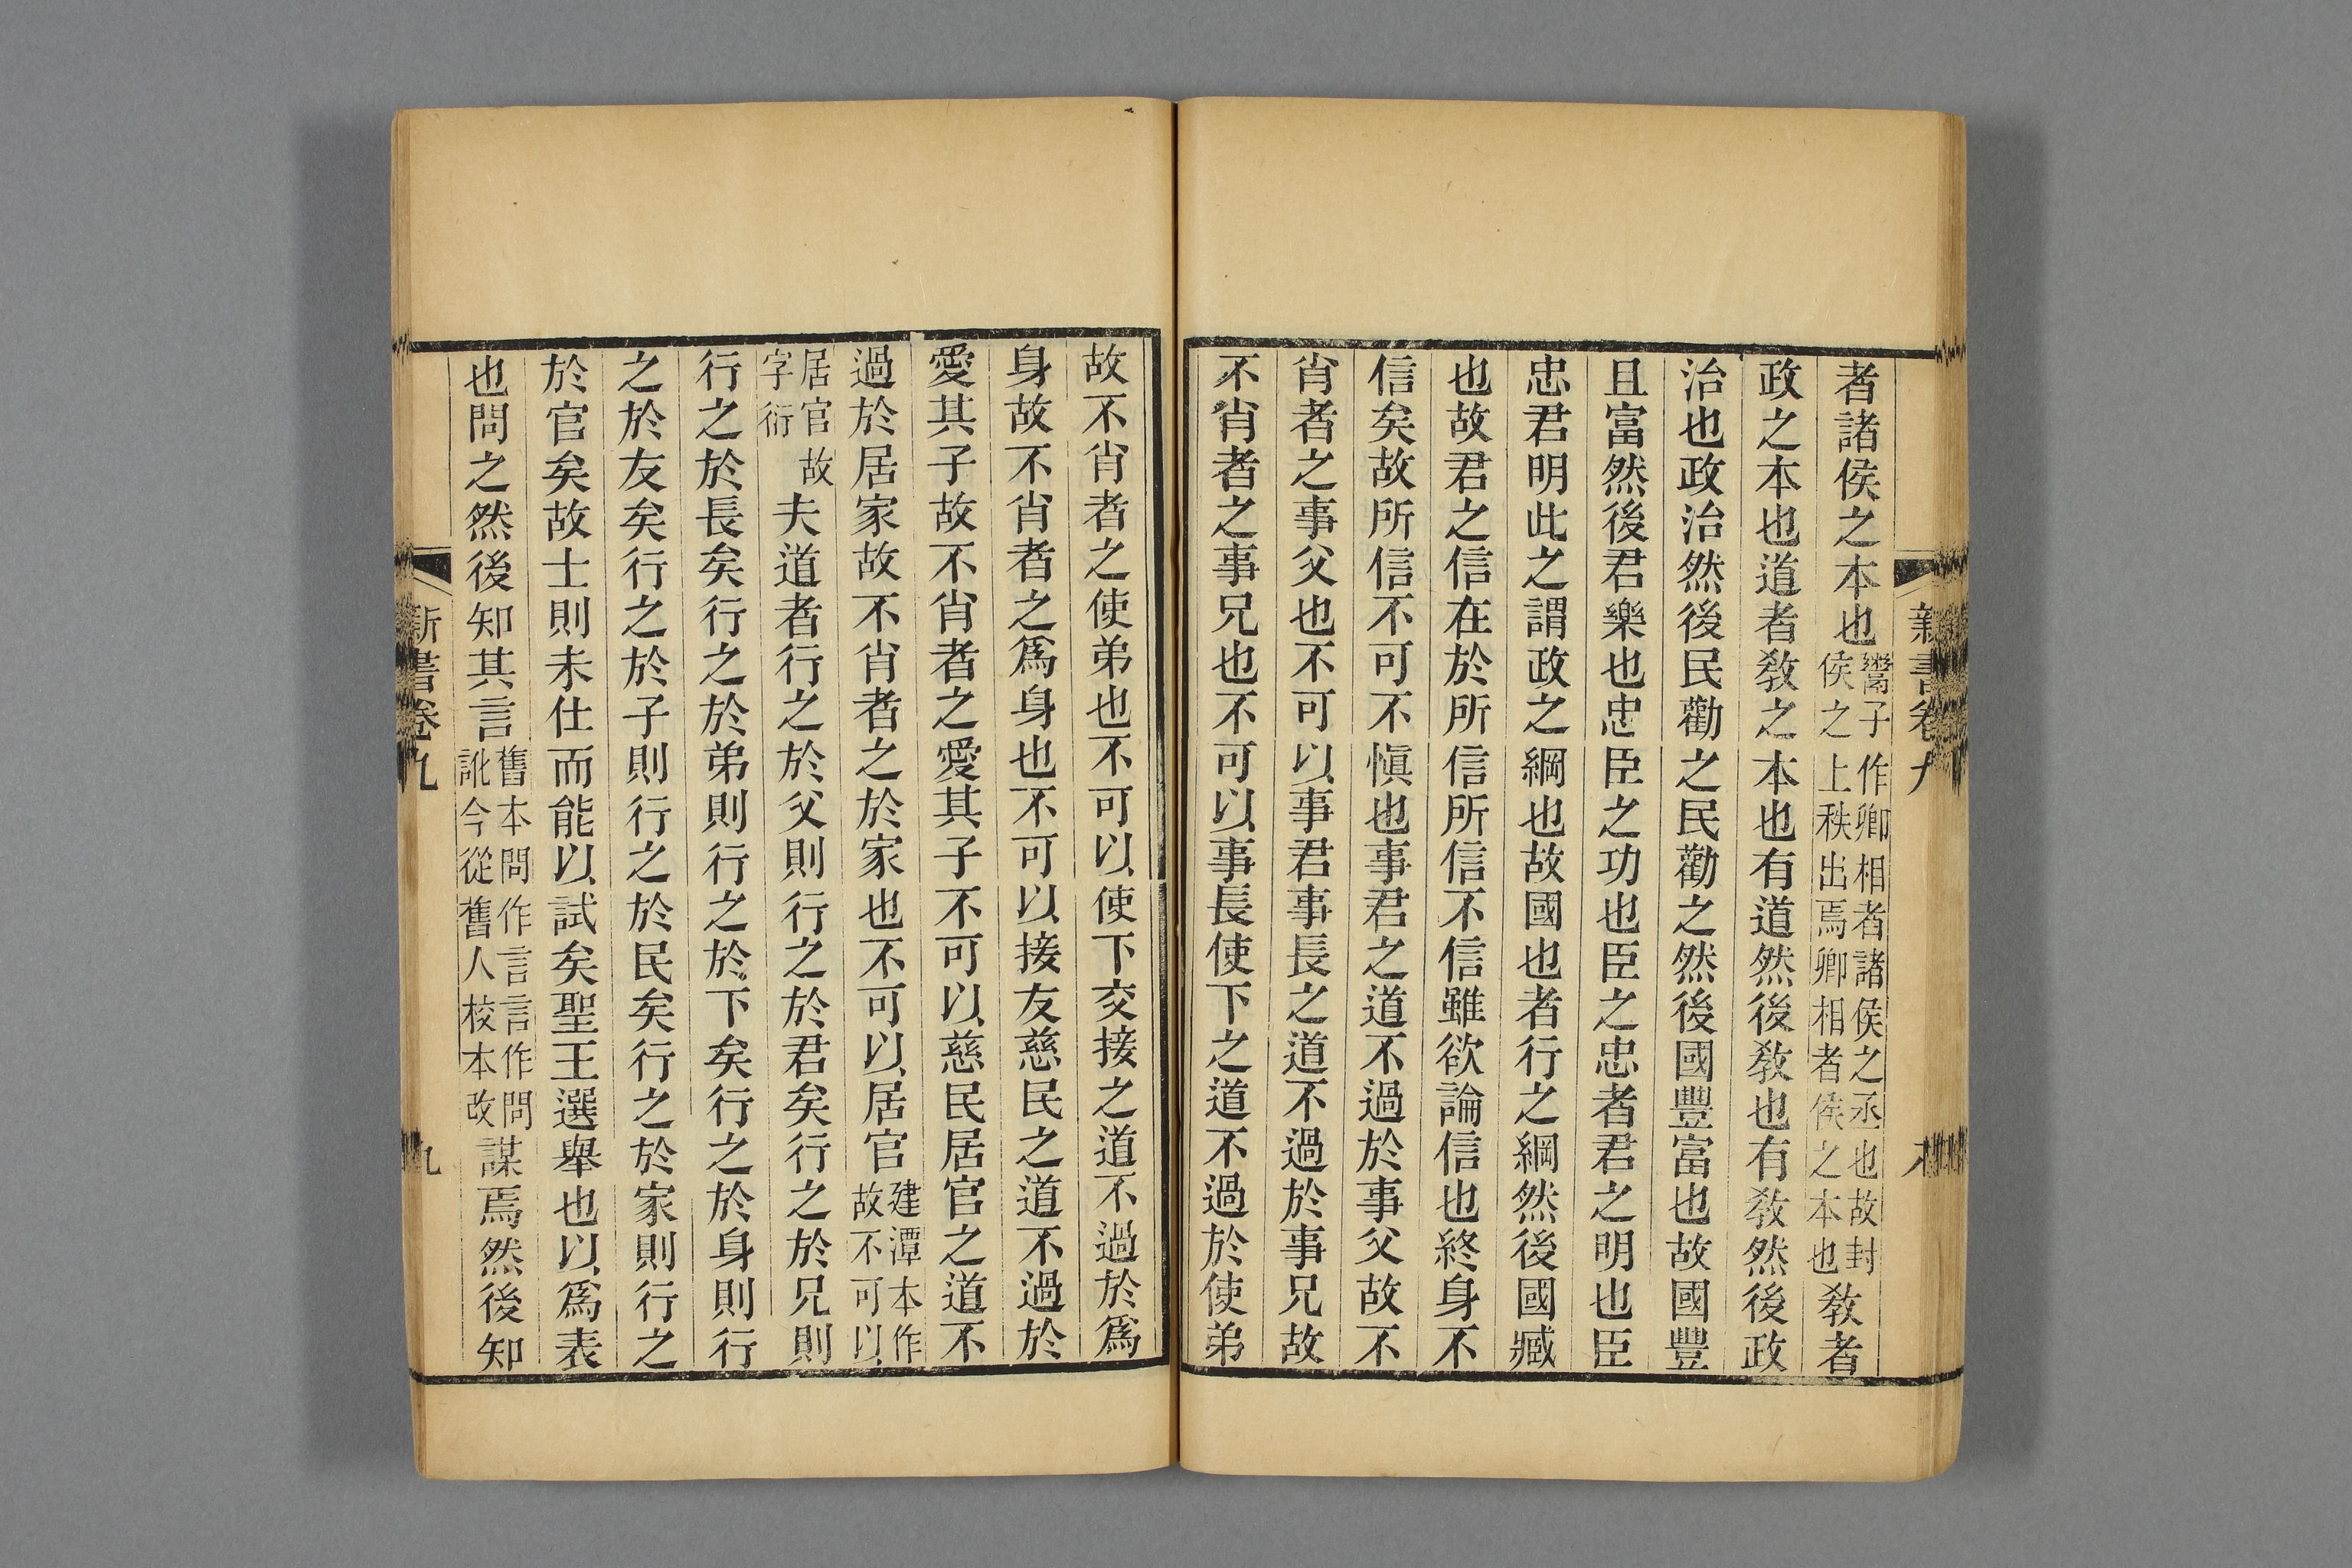 者諸侯之本也鬻子作卿相者諸侯之丞也故封侯之上秩出焉卿相者侯之本也敎者
政之本也道者敎之本也有道然後敎也有敎然後政
治也政治然後民勸之民勸之然後國豐富也故國豐
且富然後君樂也忠臣之功也臣之忠者君之明也臣
忠君明此之謂政之綱也故國也者行之綱然後國臧
也故君之信在於所信所信不信雖欲論信也終身不
信矣故所信不可不愼也事君之道不過於事父故不
肖者之事父也不可以事君事長之道不過於事兄故
不肖者之事兄也不可以事長使下之道不過於使弟
新書卷九
故不肖者之使弟也不可以使下交接之道不過於爲
身故不肖者之爲身也不可以接友慈民之道不過於
愛其子故不肖者之愛其子不可以慈民居官之道不
過於居家故不肖者之於家也不可以居官建潭本作故不可以
居官故字衍夫道者行之於父則行之於君矣行之於兄則
行之於長矣行之於弟則行之於下矣行之於身則行
之於友矣行之於子則行之於民矣行之於家則行之
於官矣故士則未仕而能以試矣聖王選舉也以爲表
也問之然後知其言舊本問作言言作問訛今從舊人校本改謀焉然後知
新書卷九
九